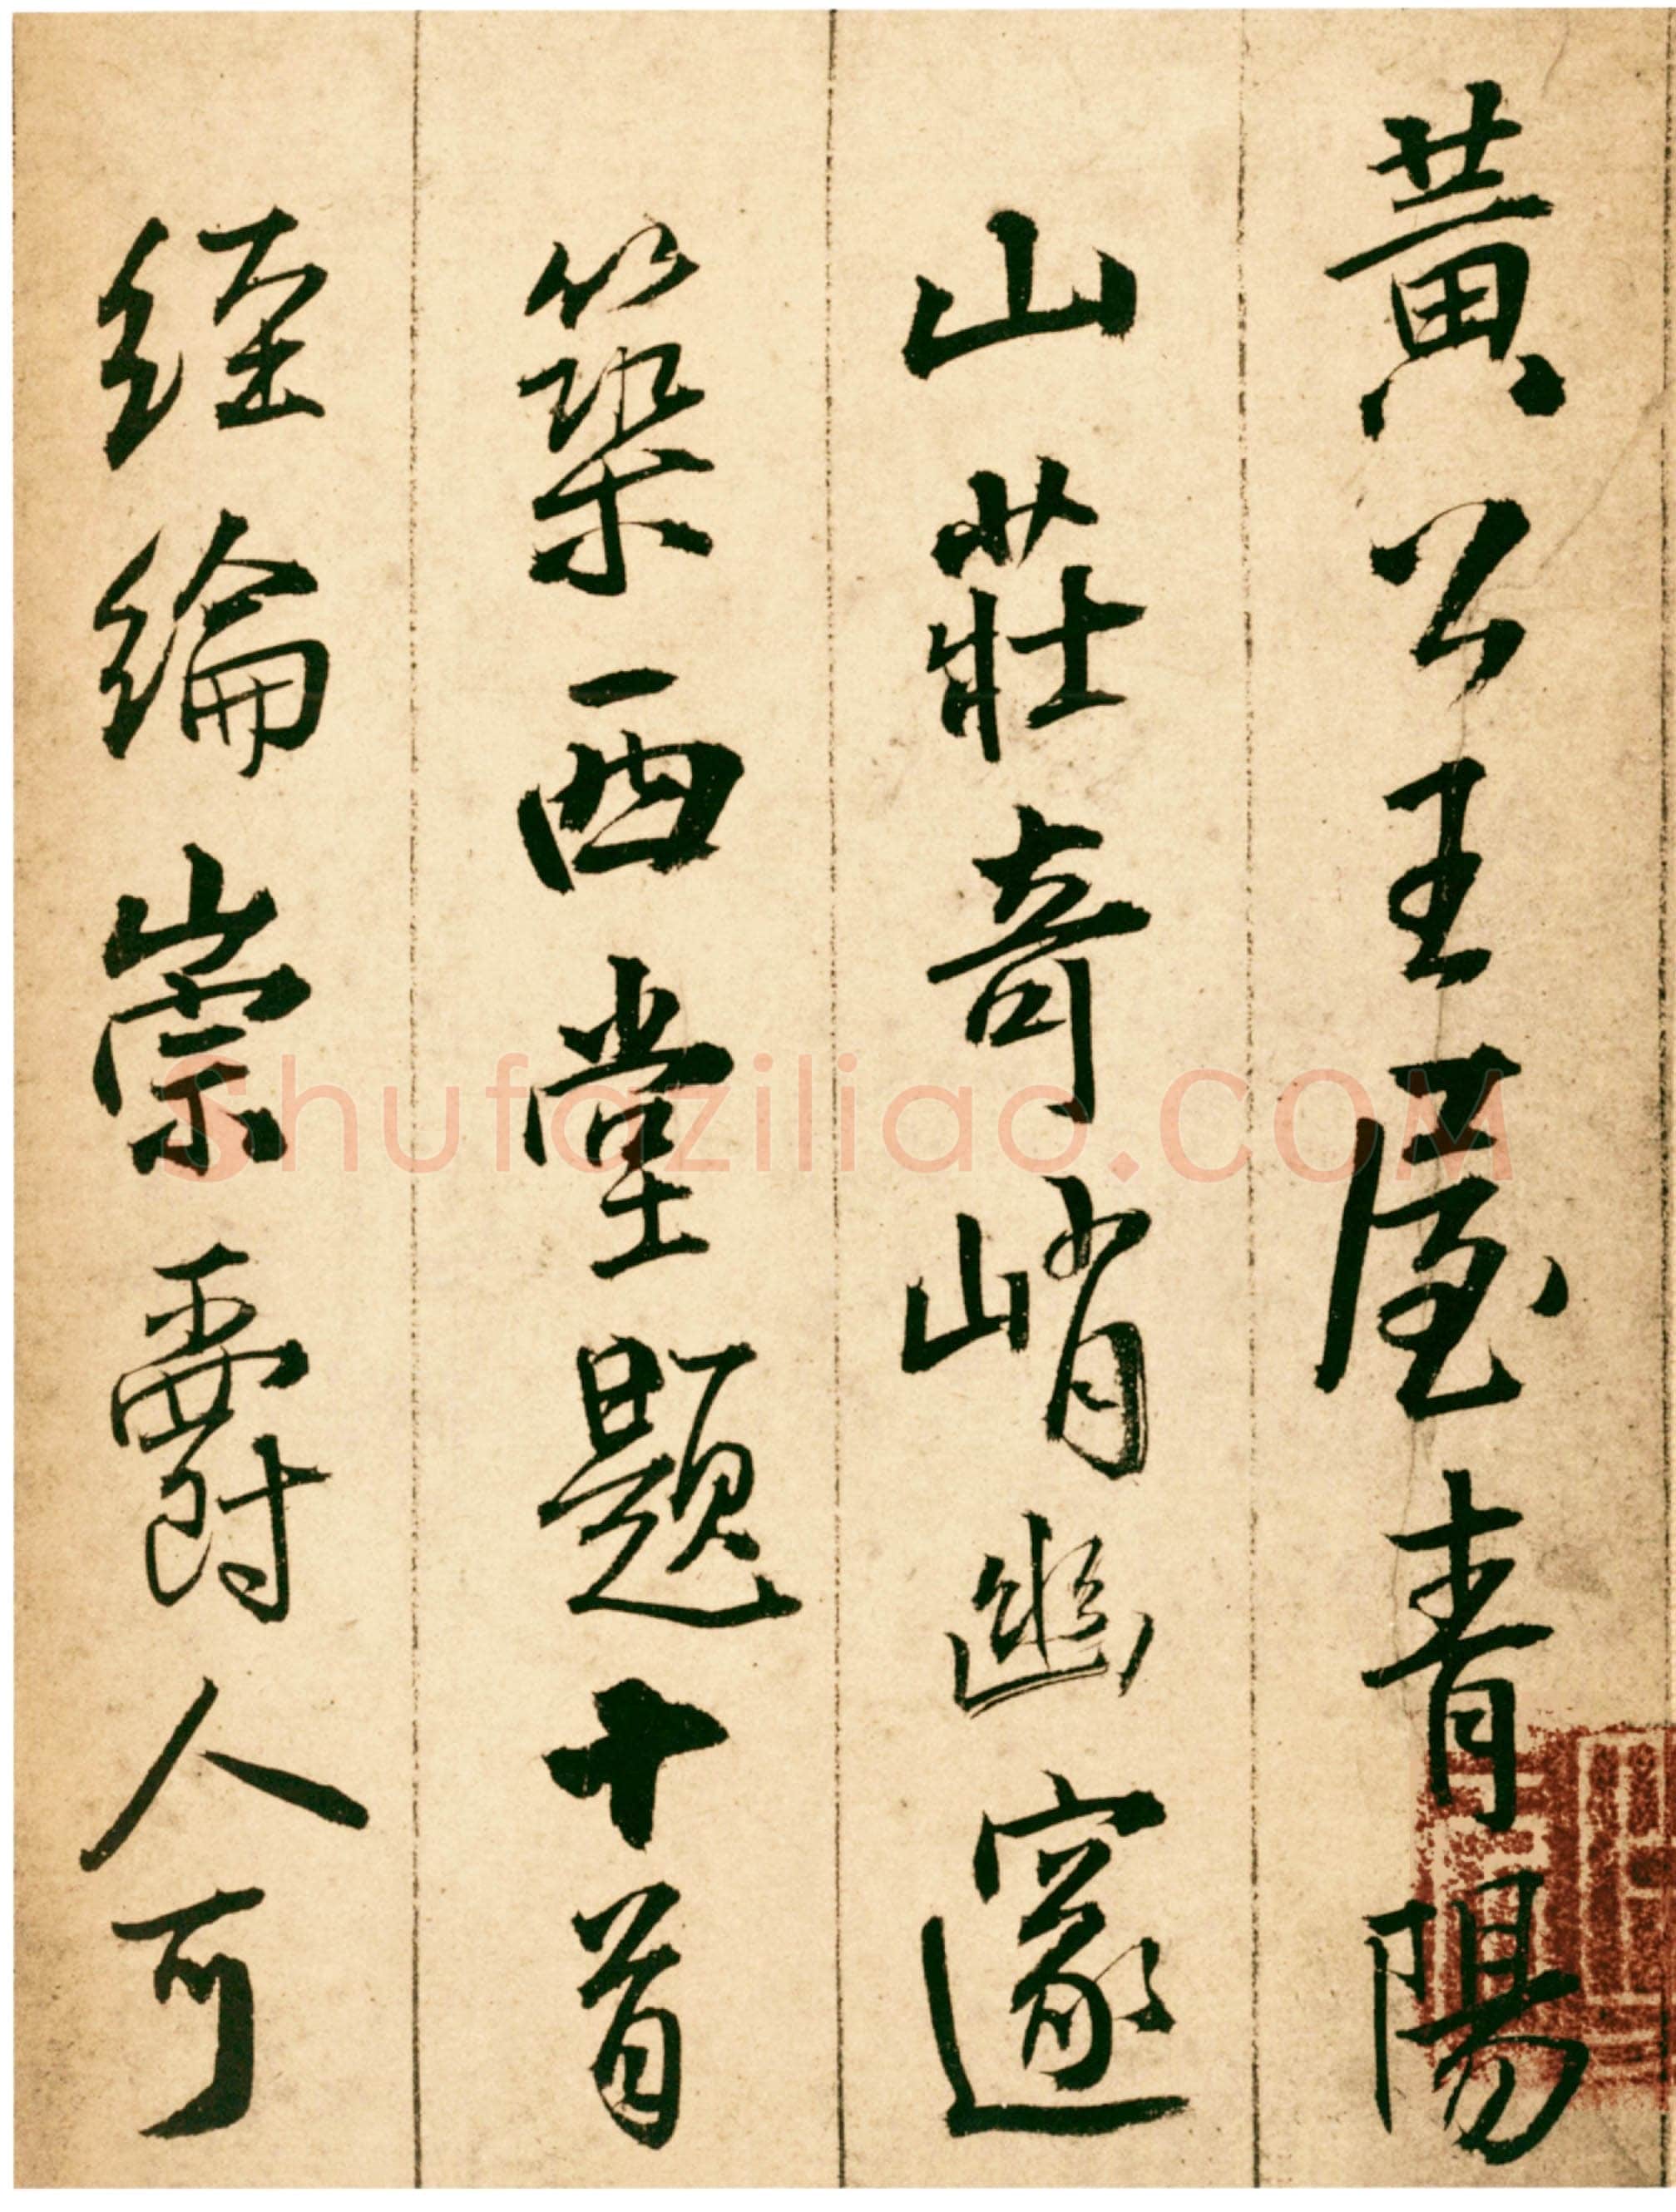 黃公王屋青陽
山莊奇峭幽邃
築西堂題十首
經綸崇爵人可
Shufaziliao.COM